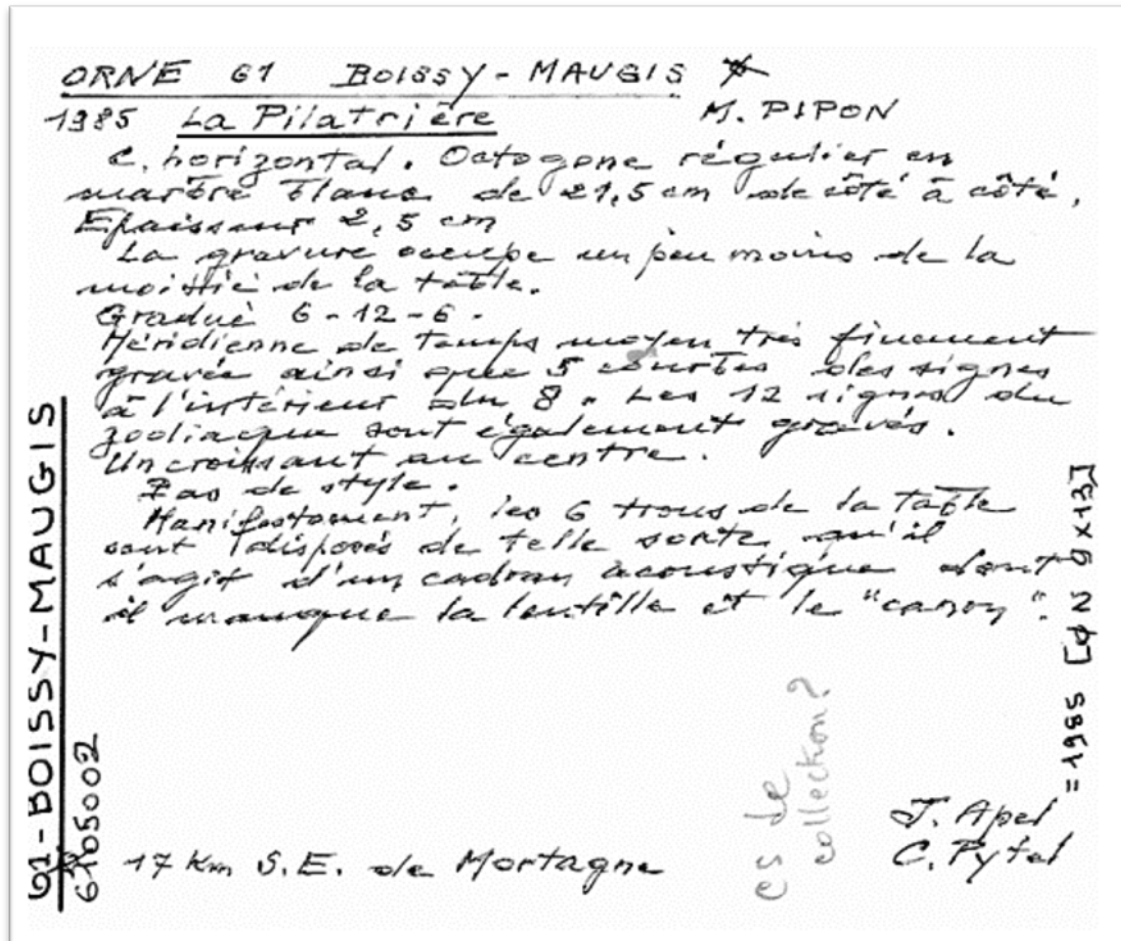 ORNE 61 BOISSY-MAUGIS
1985 La Pilatrière M. PIPON
C. horizontal. Octogone régulier en
marbre blanc de 21,5 cm de côté à côté.
Epaisseur 2,5 cm
La gravure occupe un peu moins de la
moitié de la table.
Gradué 6-12-6.
Méridienne de temps moyen très finement
gravée ainsi que 5 courbes des signes
à l'intérieur du 8. Les 12 signes du
zodiaque sont également gravés.
Un croissant au centre.
Pas de style.
Manifestement, les 6 trous de la table
sont disposés de telle sorte qu'il
s'agit d'un cadran acoustique dont
il manque la lentille et le "canon".
17 Km S.E. de Mortagne
J. Apel
C. Pytel
61-BOISSY-MAUGIS
6105002
CS de
collection?
=1985 [φ N 9x13]